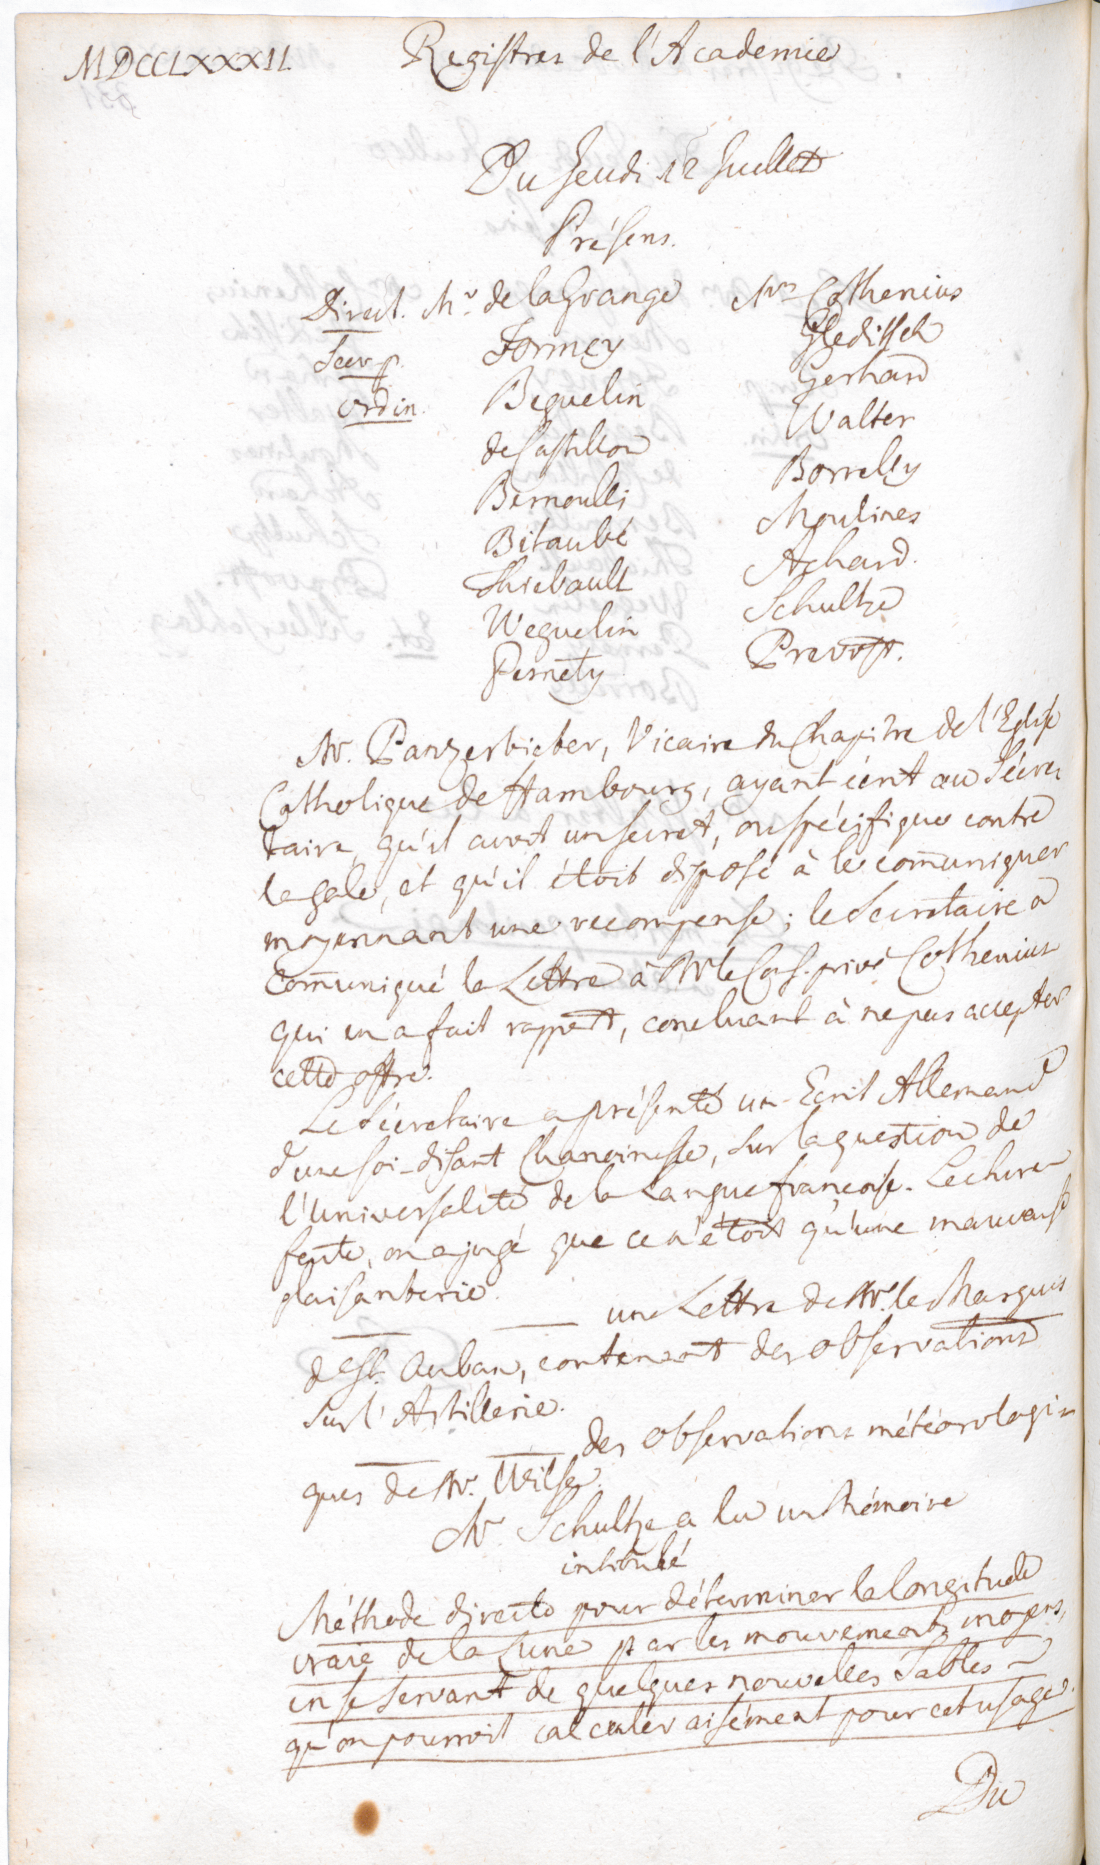 MDCCLXXXII.
Registres de l'Academie
Du Jeudi 18 Juillet
Présens.
Direct. Mr. de la Grange
Secr. p. Formey
ordin. Beguelin
de Castillon
Bernoulli
Bitaubé
Thiebault
Weguelin
Pernety
Mrs Cothenius
Gleditsch
Gerhard
Walter
Borrelly
Moulines
Achard.
Schultze
Prevost.
Mr. Panzerbieber, Vicaire du Chapitre de l'Eglise
Catholique de Hambourg, ayant écrit au Sécre,
taire, qu'il avoit un secret, ou spécifique contre
la gale, et qu'il étoit disposé à le com̄uniquer
moyennant une recompense; le Secretaire a
com̄uniqué la Lettre à Mr le Cons. privé Cothenius
qui en a fait rapport, concluant à ne pas accepter
cette offre.
Le Sécretaire a présenté un Ecrit Allemand
d'une soi-disant Chanoinesse, sur la question de
l'Universalité de la Langue françoise. Lecture
faite, on a jugé que ce n'étoit qu'une mauvaise
plaisanterie.
une Lettre de Mr. le Marquis
de St. Auban, contenant des observations
sur l'Artillerie.
des observations météorologi=
ques de Mr. Wilse.
Mr Schultze a lu un Mémoire
intitulé
Méthode directe pour déterminer la longitude
vraie de la Lune par les mouvements moyens,
en se servant de quelques nouvelles Tables
qu'on pourroit calculer aisément pour cet usage.
Du